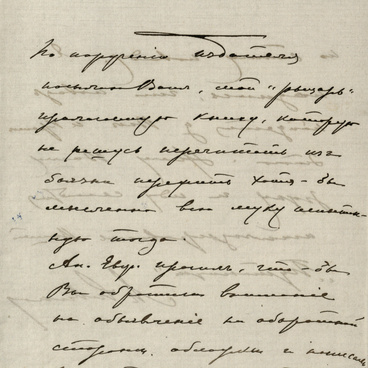 По порученію издателя
посылаю Вамъ, мой "рыцарь"
книгу, которую
не рѣшусь перечитать изъ
боязни пережить хотя-бы
мысленно всю муку испытан-
ную тогда.
Ан. просилъ, что-бы
Вы обратили вниманіе
на объявленіе на оборотной
сторонѣ обложки и написали